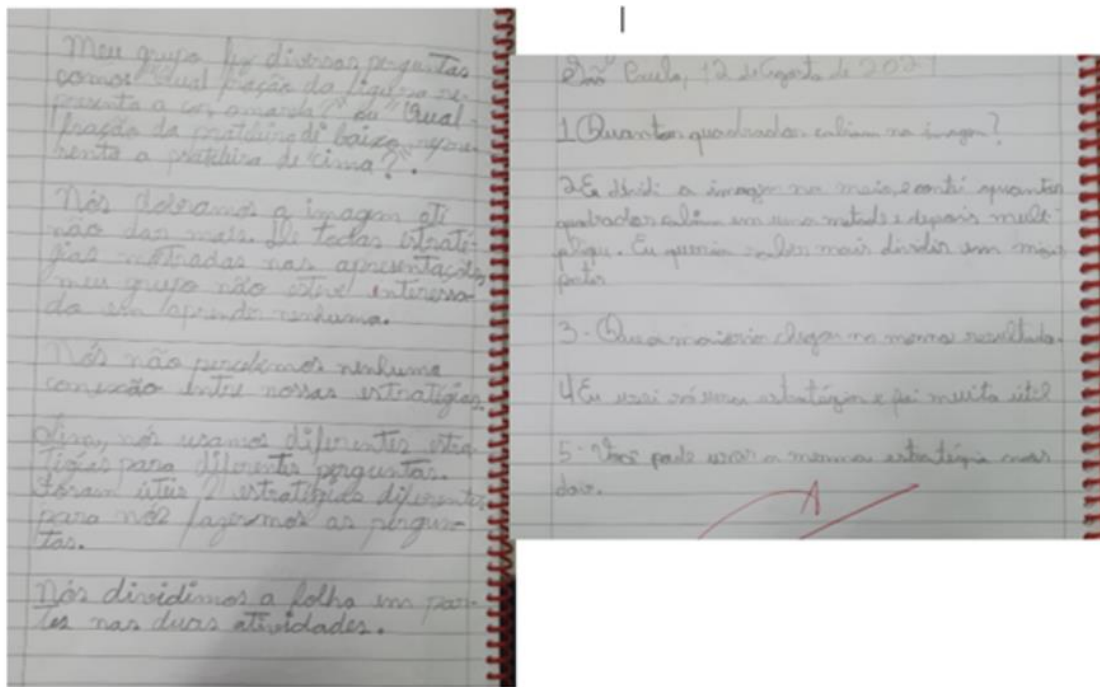 Meu grupo fez diversas perguntas
como: "Qual fração da figura re-
presenta a cor amarela?" ou "Qual
fração da prateleira de baixo repre-
senta a prateleira de cima?".
Nós dobramos a imagem até
não dar mais. De todas estraté-
gias mostradas nas apresentações
meu grupo não esteve interessa-
do em aprender nenhuma.
Nós não percebemos nenhuma
conexão entre nossas estratégias.
nós usamos diferentes estra-
tégias para diferentes perguntas.
Foram úteis 2 estratégias diferentes
para nós fazermos as pergun-
tas.
Nós dividimos a folha em par-
tes nas duas atividades.
São Paulo, 12 de Agosto de 2021
1 Quantos quadrados cabiam na imagem?
2 Eu dividi a imagem no meio, e contei quantos
quadrados cabiam em uma metade e depois multi-
pliquei. Eu queria saber mais dividir em
partes
3 - Que a maioria chegou no mesmo resultado.
4 Eu usei só uma estratégia e foi muito útil
5 - Você pode usar a mesma estratégia nas
dois.